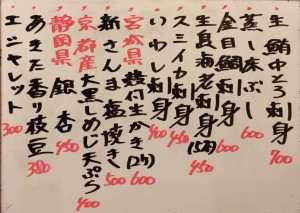 生鮪中とろ刺身 700
蒸し床ぶし 600
金目鯛刺身 600
生良海老刺身(5本) 450
スミイカ刺身 450
いわし刺身 400
宮城県 殻付生かき(2ケ) 600
新さんま塩焼き 500
京都産 大黒しめじ天ぷら 400
静岡県 銀杏 450
あきた香り枝豆 380
エシャレット 300